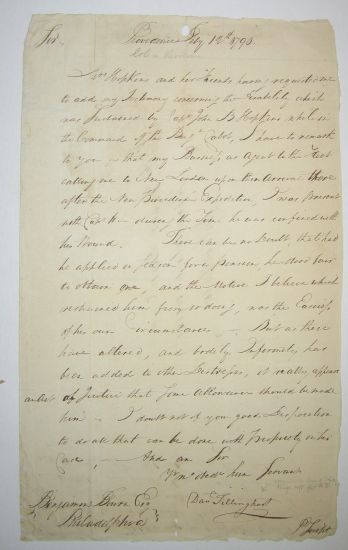 Sir, Providence Feby 12th 1790.
Mrs Hopkins and her Friends having requested me
to add my Testimony concerning the Disability which
was sustained by Capt John B Hopkins while in
the Command of the Brigt Cabot, I have to remark
to you Sir that my Business as Agent to the Fleet
calling me to New London upon their Arrival there
after the New Providence Expedition, I was present
with Capt H— during the Time he was confined with
his Wound. There can be no Doubt, that had
he applied in Season for a pension he stood fair
to obtain one, and the Motive I believe which
restrained him from so doing, was the Easiness
of his own Circumstances, — But as these
have altered, and bodily Infirmity has
been added to other Distresses, it really appears
an Act of Justice that some Allowance should be made
him — I doubt not of your good Disposition
to do all that can be done with Propriety in his
Case, — And am Sir
Yr mo. obedt. hum Servant
Danl Tillinghast
Benjamin Bourn Esq
Philadelphia